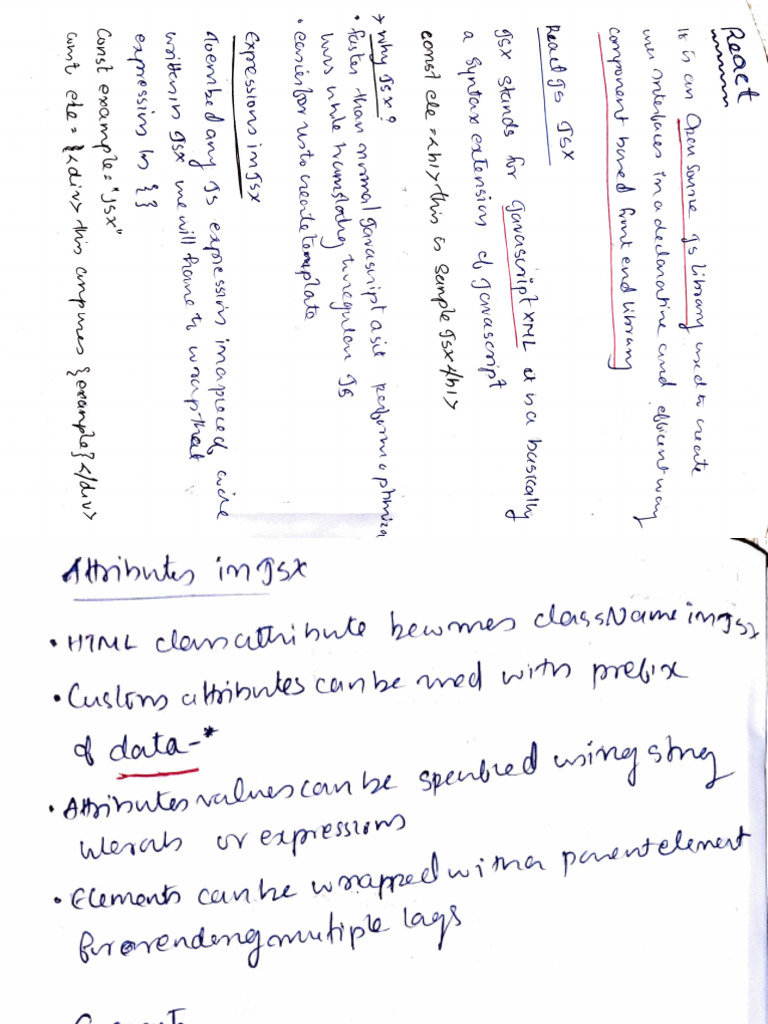 React
It is an Open Source Js library used to create
user interfaces in a declarative and efficient way
component based front end library
React Js Jsx
Jsx stands for Javascript XML it is a basically
a syntax extension of Javascript
const ele = <h1>this is Sample Jsx</h1>
> Why Jsx?
• faster than normal Javascript as it perform optimiza
while translating to regular Js
• easier for us to create template
Expressions in Jsx
To embed any Js expression in a piece of code
written in Jsx we will have to wrap that
expression in {}
Const example = "JSX"
const ele = {<div> this comprises {example}</div>
Attributes in Jsx
• HTML class attribute becomes className in Jsx
• Custom attributes can be used with prefix
of data-*
• Attributes values can be specified using string
literals or expressions
• Elements can be wrapped with a parent element
for rendering multiple tags